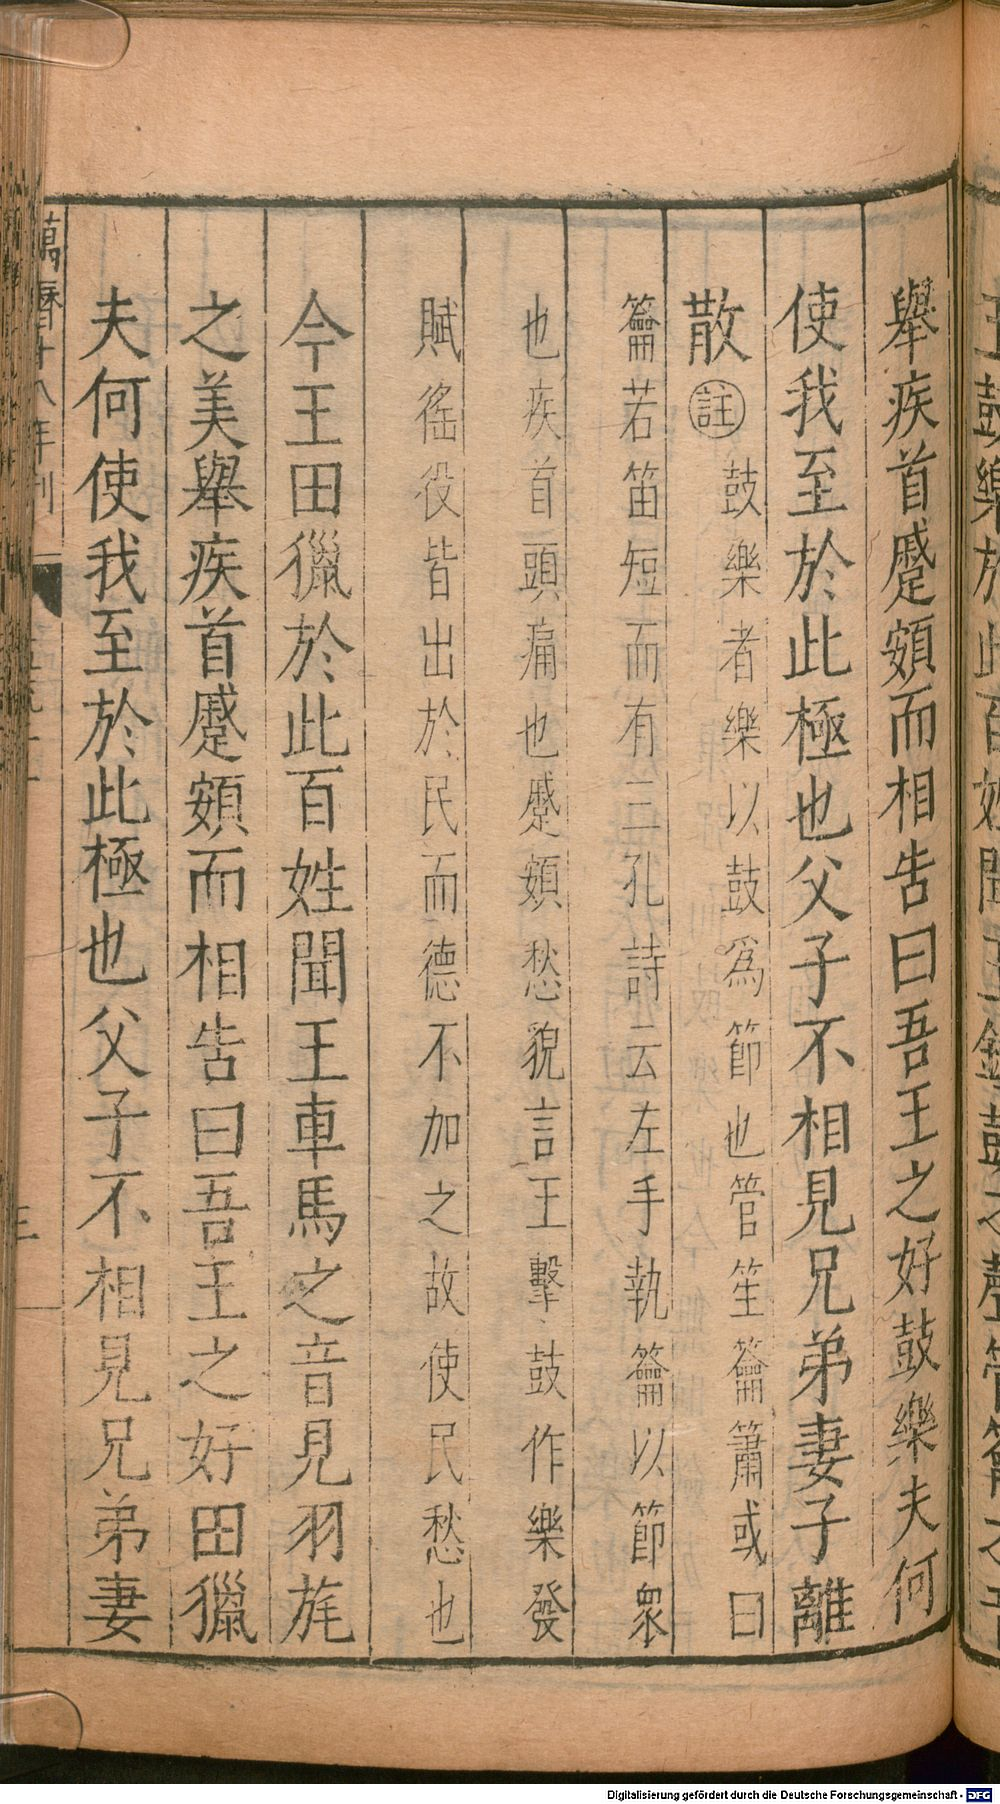 舉疾首蹙頞而相告曰吾王之好鼓樂夫何
使我至於此極也父子不相見兄弟妻子離
散註鼓樂者樂以鼓爲節也管笙籥簫或曰
籥若笛短而有三孔詩云左手執籥以節衆
也疾首頭痛也蹙頞愁貌言王擊鼓作樂發
賦徭役皆出於民而德不加之故使民愁也
今王田獵於此百姓聞王車馬之音見羽旄
之美舉疾首蹙頞而相告曰吾王之好田獵
夫何使我至於此極也父子不相見兄弟妻
萬曆十八年刊
Digitalisierung gefördert durch die Deutsche Forschungsgemeinschaft - DFG